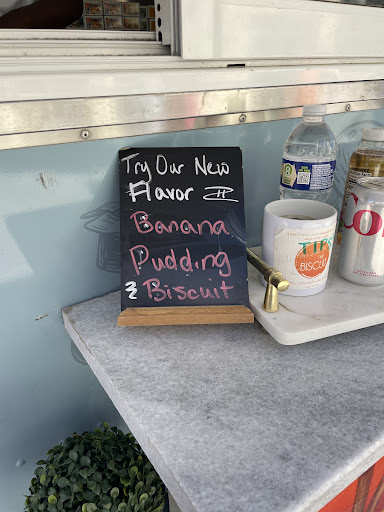 Try Our New
Flavor
Banana
Pudding
& Biscuit
TIPS
BISCUIT
CO